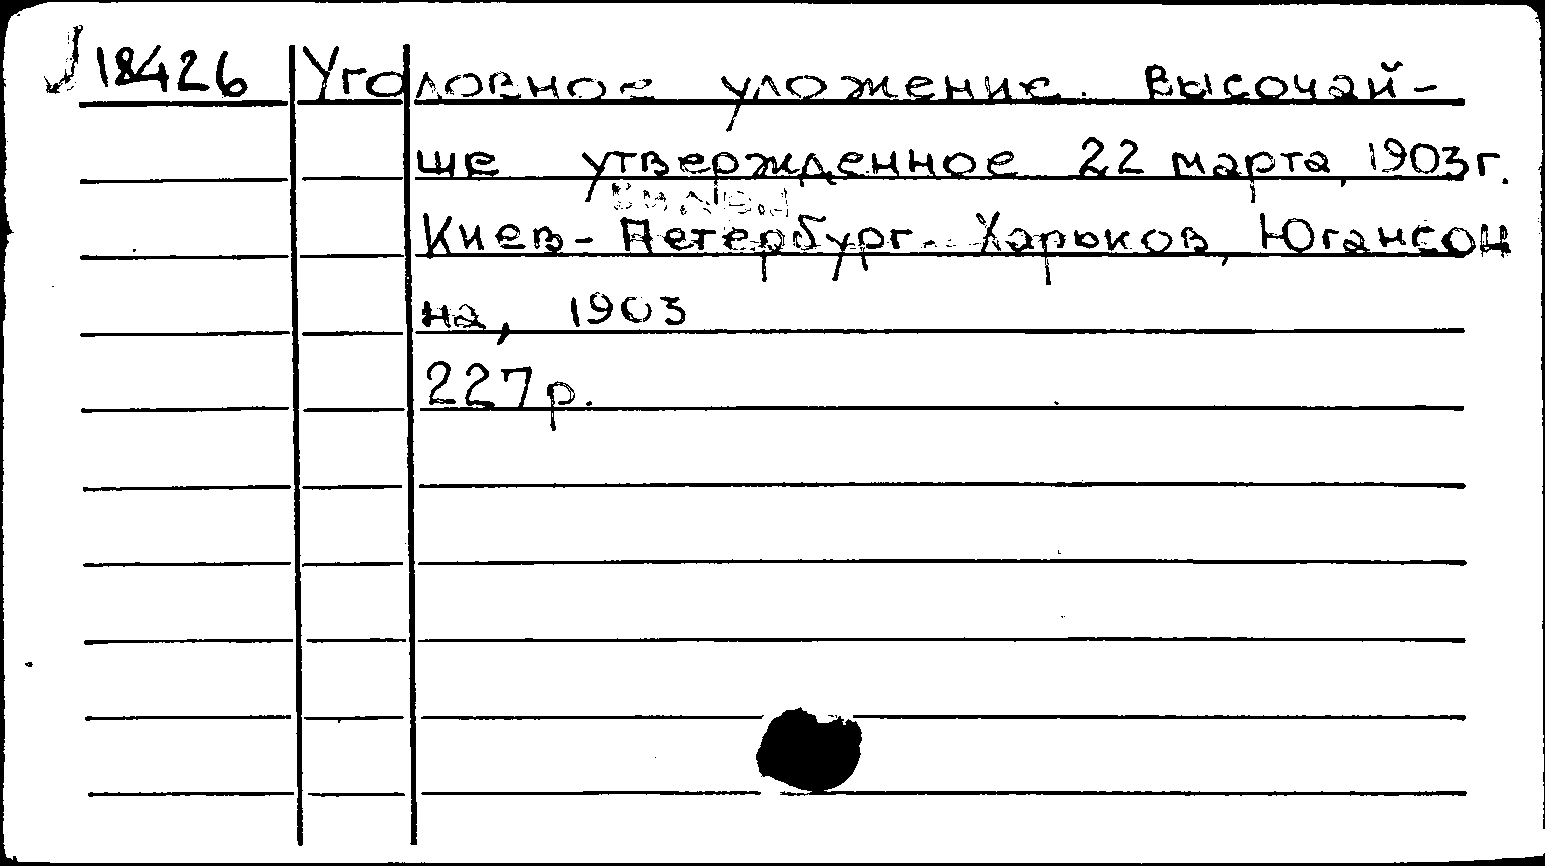 18426 Уголовное уложение. Высочай-
ше утвержденное 22 марта 1903г.
Киев-Петербург-Харьков, Югансон
на, 1903
227р.